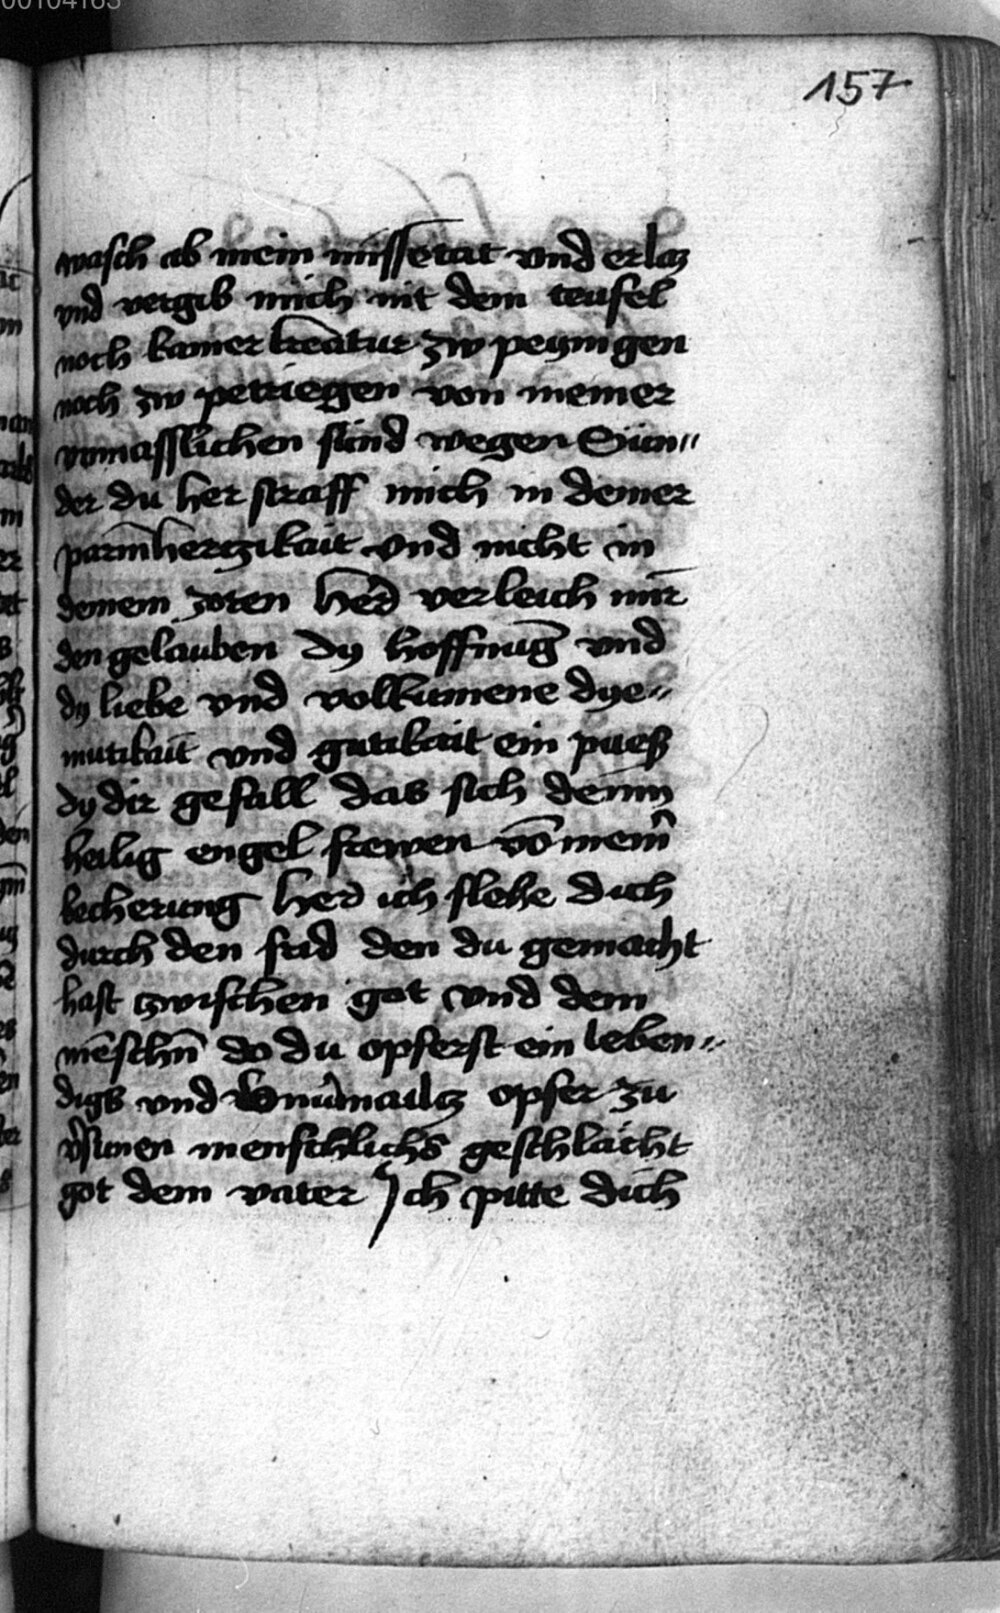 00104163
157
wasch ab mein missetat vnd erlaz
vnd vergib mich nit dem teufel
noch kainer creatur zw peynigen
noch zw petriegen von meiner
vnmasslichen sünd wegen Sun„
der du her straff mich in deiner
parmhertzikait vnd nicht in
deinem zoren Her verleich mir
den gelauben dy hoffnug vnd
dy liebe vnd volkumene dye„
mutikait vnd gutikait ein pues
dy dir gefall das sich deinn
heilig engel frewen vō mein̄
becherung her ich flehe dich
durch den frid den du gemacht
hast zwischen got vnd dem
mēschn̄ do du opferst ein leben„
digs vnd vnuermailgz opfer zu
v̾sunen menschlichs geschlächt
got dem vater Ich pitte dich